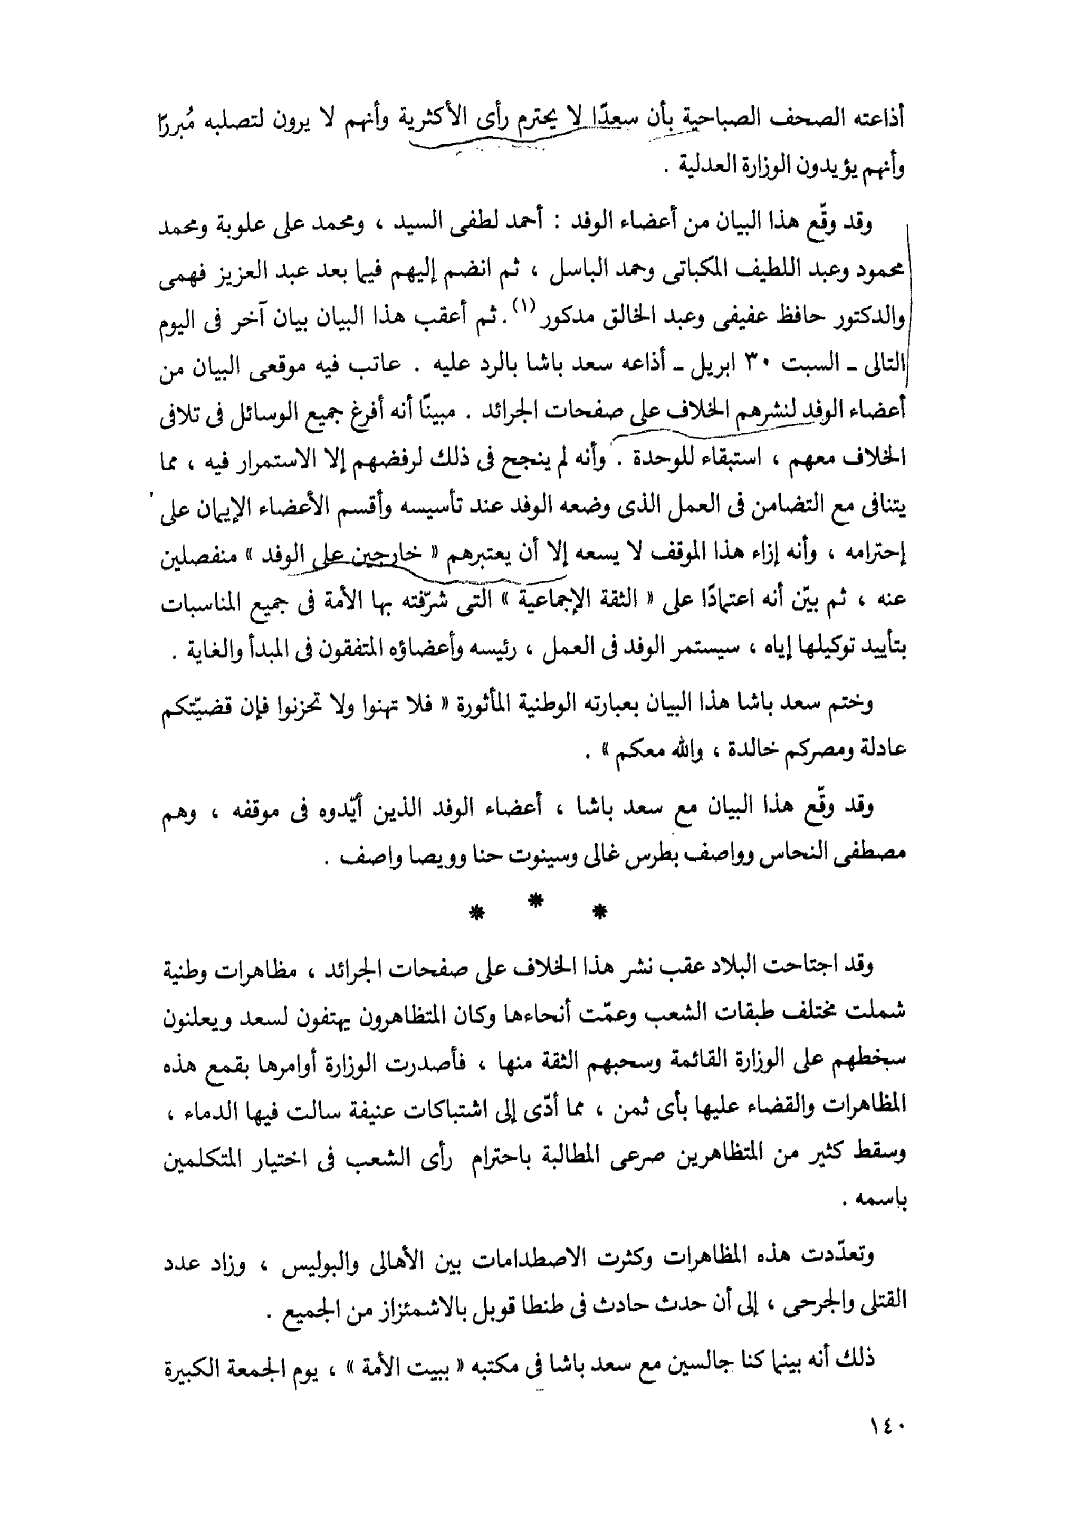 أذاعته الصحف الصباحية بأن سعدًا لا يحترم رأى الأكثرية وأنهم لا يرون لتصلبه مُبررًا
وأنهم يؤيدون الوزارة العدلية .
وقد وقّع هذا البيان من أعضاء الوفد : أحمد لطفى السيد ، ومحمد على علوبة ومحمد
محمود وعبد اللطيف المكباتى وحمد الباسل ، ثم انضم إليهم فيما بعد عبد العزيز فهمى
والدكتور حافظ عفيفى وعبد الخالق مدكور (١). ثم أعقب هذا البيان بيان آخر فى اليوم
التالى ـ السبت ٣٠ ابريل ـ أذاعه سعد باشا بالرد عليه . عاتب فيه موقعى البيان من
أعضاء الوفد لنشرهم الخلاف على صفحات الجرائد . مبينًا أنه أفرغ جميع الوسائل فى تلافى
الخلاف معهم ، استبقاء للوحدة . وأنه لم ينجح فى ذلك لرفضهم إلا الاستمرار فيه ، مما
يتنافى مع التضامن فى العمل الذى وضعه الوفد عند تأسيسه وأقسم الأعضاء الإيمان على
إحترامه ، وأنه إزاء هذا الموقف لا يسعه إلا أن يعتبرهم « خارجين على الوفد » منفصلين
عنه ، ثم بيّن أنه اعتمادًا على « الثقة الإجماعية » التى شرّفته بها الأمة فى جميع المناسبات
بتأييد توكيلها إياه ، سيستمر الوفد فى العمل ، رئيسه وأعضاؤه المتفقون فى المبدأ والغاية .
وختم سعد باشا هذا البيان بعبارته الوطنية المأثورة « فلا تهنوا ولا تحزنوا فإن قضيّتكم
عادلة ومصركم خالدة ، والله معكم » .
وقد وقّع هذا البيان مع سعد باشا ، أعضاء الوفد الذين أيّدوه فى موقفه ، وهم
مصطفى النحاس وواصف بطرس غالى وسينوت حنا وويصا واصف .
* * *
وقد اجتاحت البلاد عقب نشر هذا الخلاف على صفحات الجرائد ، مظاهرات وطنية
شملت مختلف طبقات الشعب وعمّت أنحاءها وكان المتظاهرون يهتفون لسعد ويعلنون
سخطهم على الوزارة القائمة وسحبهم الثقة منها ، فأصدرت الوزارة أوامرها بقمع هذه
المظاهرات والقضاء عليها بأى ثمن ، مما أدّى إلى اشتباكات عنيفة سالت فيها الدماء ،
وسقط كثير من المتظاهرين صرعى المطالبة باحترام رأى الشعب فى اختيار المتكلمين
باسمه .
وتعدّدت هذه المظاهرات وكثرت الاصطدامات بين الأهالى والبوليس ، وزاد عدد
القتلى والجرحى ، إلى أن حدث حادث فى طنطا قوبل بالاشمئزاز من الجميع .
ذلك أنه بينما كنا جالسين مع سعد باشا فى مكتبه « ببيت الأمة » ، يوم الجمعة الكبيرة
١٤٠